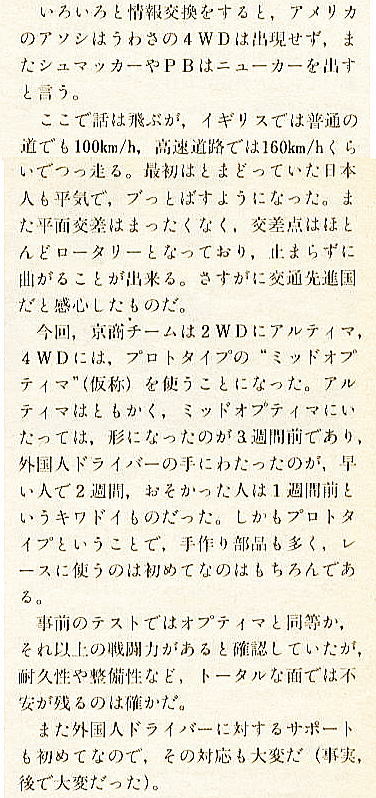 いろいろと情報交換をすると，アメリカ
のアソシはうわさの4WDは出現せず，ま
たシュマッカーやPBはニューカーを出す
と言う。
ここで話は飛ぶが，イギリスでは普通の
道でも100km/h，高速道路では160km/hくら
いでつっ走る。最初はとまどっていた日本
人も平気で，ブっとばすようになった。ま
た平面交差はまったくなく，交差点はほと
んどロータリーとなっており，止まらずに
曲がることが出来る。さすがに交通先進国
だと感心したものだ。
今回，京商チームは2WDにアルティマ，
4WDには，プロトタイプの“ミッドオプ
ティマ”(仮称）を使うことになった。アル
ティマはともかく，ミッドオプティマにい
たっては，形になったのが3週間前であり，
外国人ドライバーの手にわたったのが，早
い人で2週間，おそかった人は1週間前と
いうキワドイものだった。しかもプロトタ
イプということで，手作り部品も多く，レ
ースに使うのは初めてなのはもちろんであ
る。
事前のテストではオプティマと同等か，
それ以上の戦闘力があると確認していたが，
耐久性や整備性など，トータルな面では不
安が残るのは確かだ。
また外国人ドライバーに対するサポート
も初めてなので，その対応も大変だ（事実，
後で大変だった）。